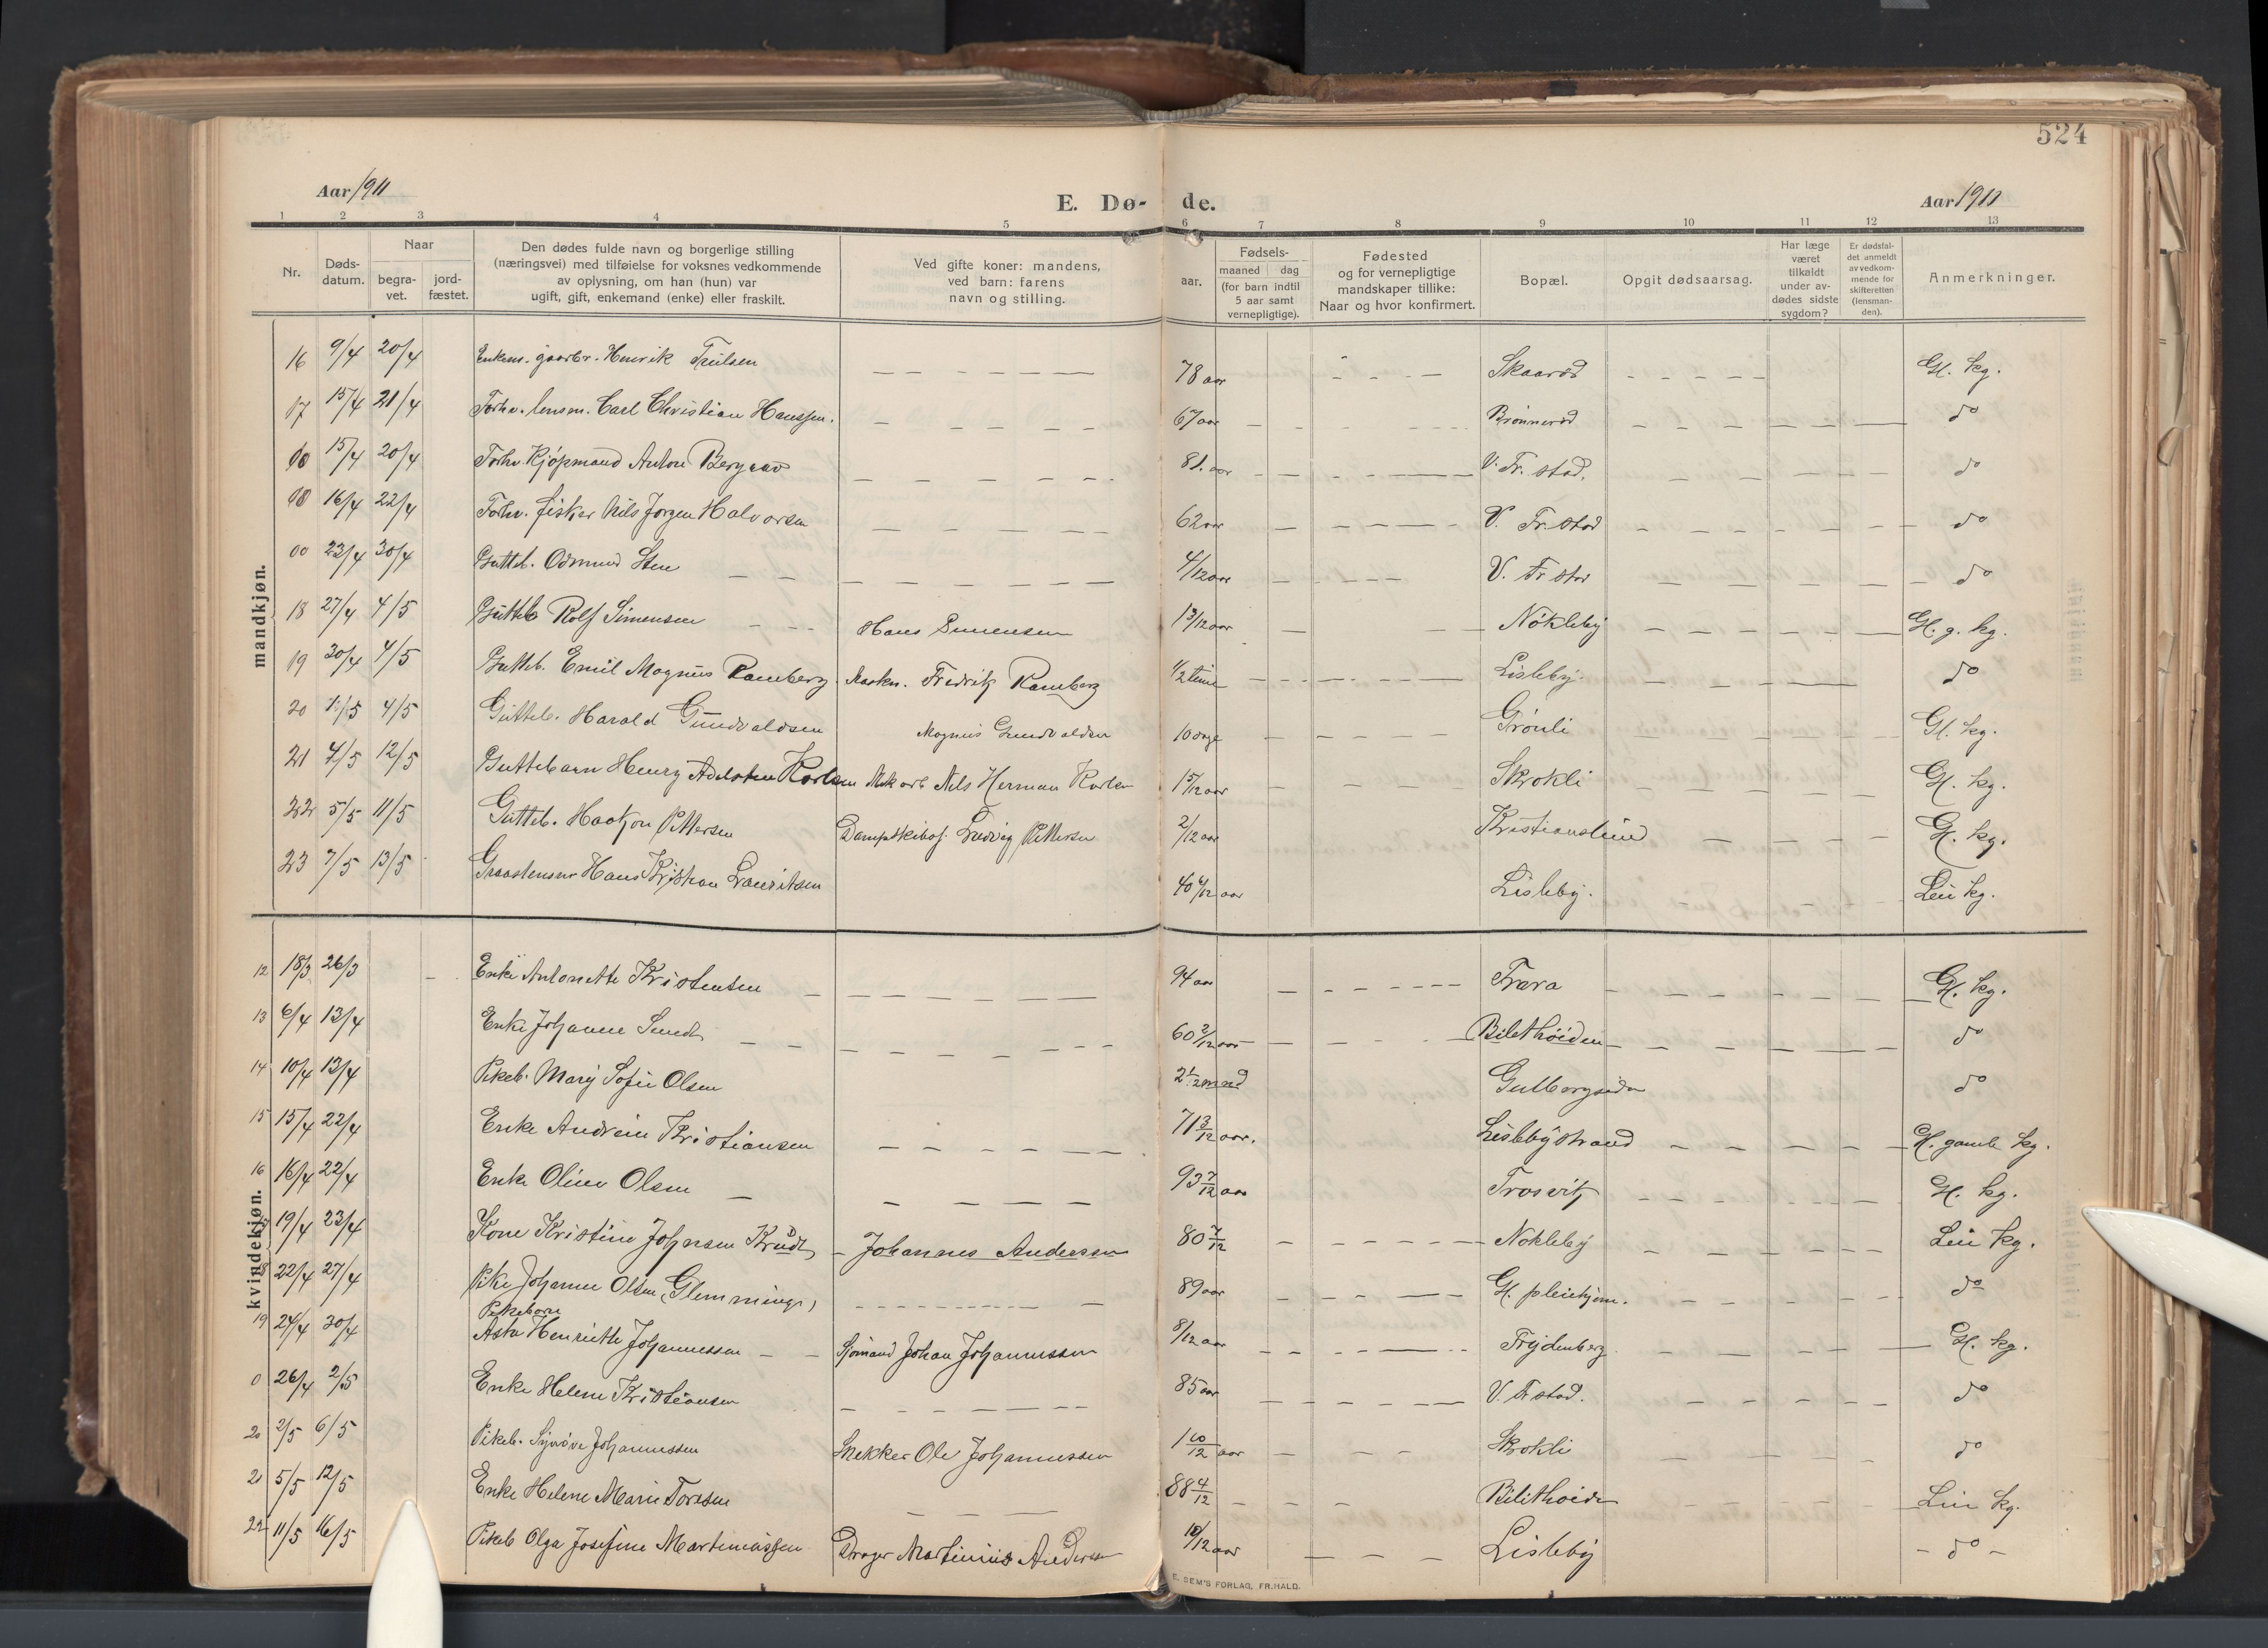 524
Aar 1911
E. Dø- de.
Aar 1911
1 2 3 4 5 6 7 8 9 10 11 12 13
Nr.
Døds-
datum.
Naar
begra-
vet.
jord-
fæstet.
Den dødes fulde navn og borgerlige stilling
(næringsvei) med tilføielse for voksnes vedkommende
av oplysning, om han (hun) var
ugift, gift, enkemand (enke) eller fraskilt.
Ved gifte koner: mandens,
ved barn: farens
navn og stilling.
aar.
Fødsels-
maaned dag
(for barn indtil
5 aar samt
vernepligtige).
Fødested
og for vernepligtige
mandskaper tillike:
Naar og hvor konfirmert.
Bopæl.
Opgit dødsaarsag.
Har læge
været
tilkaldt
under av-
dødes sidste
sygdom?
Er dødsfal-
det anmeldt
av vedkom-
mende for
skifteretten
(lensman-
den).
Anmerkninger.
mandkjøn.
16 9/4 20/4 Enkem. gaarbr. Henrik Trulsen 78 aar Skaarød Gl. kg.
17 15/4 21/4 Forhv. lensm. Carl Christian Hanssen. 67 aar Brønnerød do
15/4 20/4 Forhv. Kjøpmand Anton 81. aar V. Fr. stad. do
16/4 22/4 Forhv. fisker Nils Jørgen Halvorsen 62 aar V. Fr. stad do
00 23/4 30/4 Gutteb. Odmund Sten 4/12 aar V. Fr stad do
18 27/4 4/5 Gutteb Rolf Simensen Hans Simensen 1 3/12 aar Nökleby Gl. g. kg.
19 30/4 4/5 Gutteb. Emil Magnus Ramberg. Maskn. Fredrik Ramberg 1/2 time Lisleby. do
20 1/5 4/5 Gutteb. Harald Gundvaldsen Magnus Gundvaldsen 10 Grönli Gl. kg.
21 4/5 12/5 Guttebarn Henry Adelsten Karlsen Nils Herman Karlsen 1 5/12 aar Skrokli Gl. kg.
22 5/5 11/5 Gutteb. Haakon Pettersen Ludvig Pettersen 2/12 aar Kristianslund Gl. kg.
23 7/5 13/5 Hans Kristian Lauritsen 40 6/12 aar Lisleby. Leie kg.
kvindekjøn.
12 18/3 26/3 Enke Antonette Kristensen 94 aar Trara Gl. kg.
13 6/4 13/4 Enke Johanne Sundt 60 2/12 aar Bilethöiden do
14 10/4 13/4 Pikeb. Mary Sofie Olsen 2 1/2 mnd Gulbergsiden do
15 15/4 22/4 Enke Andrein Kristiansen 71 3/12 aar. Lislebystrand Gl. gamle kg.
16 16/4 22/4 Enke Oline Olsen 93 7/12 aar Trosvik Gl. kg.
19/4 23/4 Kone Kristine Johnsen Johannes Anderssen 80 7/12 Nokleby Leie kg.
18 22/4 27/4 Pike Johanne Olsen (Glemminge) 89 aar Gl. pleiehjem. do
Pikebarn
19 24/4 30/4 Asta Henriette Johannessen Sjømand Johan Johannessen 8/12 aar Frydenberg Gl. kg.
0 26/4 2/5 Enke Helene Kristiansen 85 aar V. Fr stad. do
20 2/5 6/5 Pikeb. Synöve Johannessen Snekker Ole Johannessen 1 10/12 aar Skrokli do
21 5/5 12/5 Enke Helene Marie Torssen 88 4/12 Bilethöiden Leie kg.
22 11/5 16/5 Pikeb Olga Josefine Martiniussen Drager Martinius Anderssen 10/12 aar Lisleby do
E. SEM'S FORLAG, FR.HALD.